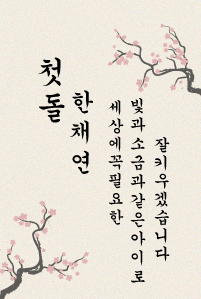 첫돌
한채연
세상에꼭필요한
빛과소금과같은아이로
잘키우겠습니다